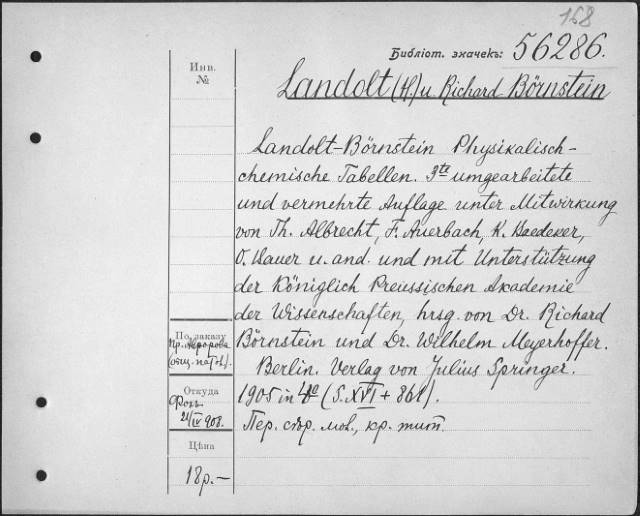 168
Библіот. значекъ: 56286.
Инв.
№
Landolt (H.) u Richard Börnstein
Landolt-Börnstein Physikalisch-
chemische Tabellen. 3te umgearbeitete
und vermehrte Auflage unter Mitwirkung
von Th. Albrecht, F. Auerbach, K.
O. u. and. und mit Unterstützung
der Königlich Preussischen Akademie
der Wissenschaften, hrsg. von Dr. Richard
Börnstein und Dr. Wilhelm Meyerhoffer.
Berlin. Verlag von Julius Springer.
1905 in 4to (S. XVI + 861).
Пер. кр. тит.
По заказу
Пр.
Откуда
21/IV 908.
Цѣна
18р.—